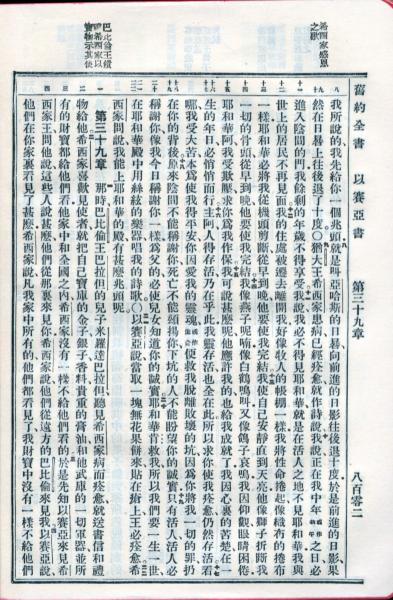 舊約全書 以賽亞書 第三十九章 八百零二
希西家感恩
之歌
我所說的我先給你一個兆頭就是叫亞哈斯的日晷向前進的日影往後退十度於是前進的日影果
然在日晷上往後退了十度○猶大王希西家患病已經痊愈就作詩說我說正在我中年之日必
進入陰間的門我餘剩的年歲不得享受我說我必不得見耶和華就是在活人之地不見耶和華我與
世上的居民不再見面我的住處被遷去離開我好像牧人的帳棚一樣我將性命捲起像織布的捲布
一樣耶和華必將我從機頭剪斷從早到晚他要使我完結我使自己安靜直到天亮他像獅子折斷我
一切的骨頭從早到晚他要使我完結我像燕子呢喃像白鶴鳴叫又像鴿子哀鳴我因仰觀眼睛困倦
耶和華阿我受欺壓求你為我作保我可說甚麼呢他應許我的也給我成就了我因心裏的苦楚在一
生的年日必悄悄而行主阿人得存活乃在乎此我靈存活也全在此所以求你使我痊愈仍然存活看
哪我受大苦本為使我得平安你因愛我的靈魂便救我脫離敗壞的坑因為你將我一切的罪扔
在你的背後原來陰間不能稱謝你死亡不能頌揚你下坑的人不能盼望你的誠實只有活人活人必
稱謝你像我今日稱謝你一樣為父的必使兒女知道你的誠實耶和華肯救我所以我們要一生一世
在耶和華殿中用絲絃的樂器唱我的詩歌○以賽亞說當取一塊無花果餅來貼在瘡上王必痊愈希
西家問說我能上耶和華的殿有甚麼兆頭呢
巴比倫王候
希西家以
寶物示其使
第三十九章 那時巴比倫王巴拉但的兒子米羅達巴拉但聽見希西家病而痊愈就送書信和禮
物給他希西家喜歡見使者就把自己寶庫的金子銀子香料貴重的膏油和他武庫的一切軍器並所
有的財寶都給他們看他家中和全國之內希西家沒有一樣不給他們看的於是先知以賽亞來見希
西家王問他說這些人說甚麼他們從那裏來見你希西家說他們從遠方的巴比倫來見我以賽亞說
他們在你家裏看見了甚麼希西家說凡我家中所有的他們都看見了我財寶中沒有一樣不給他們